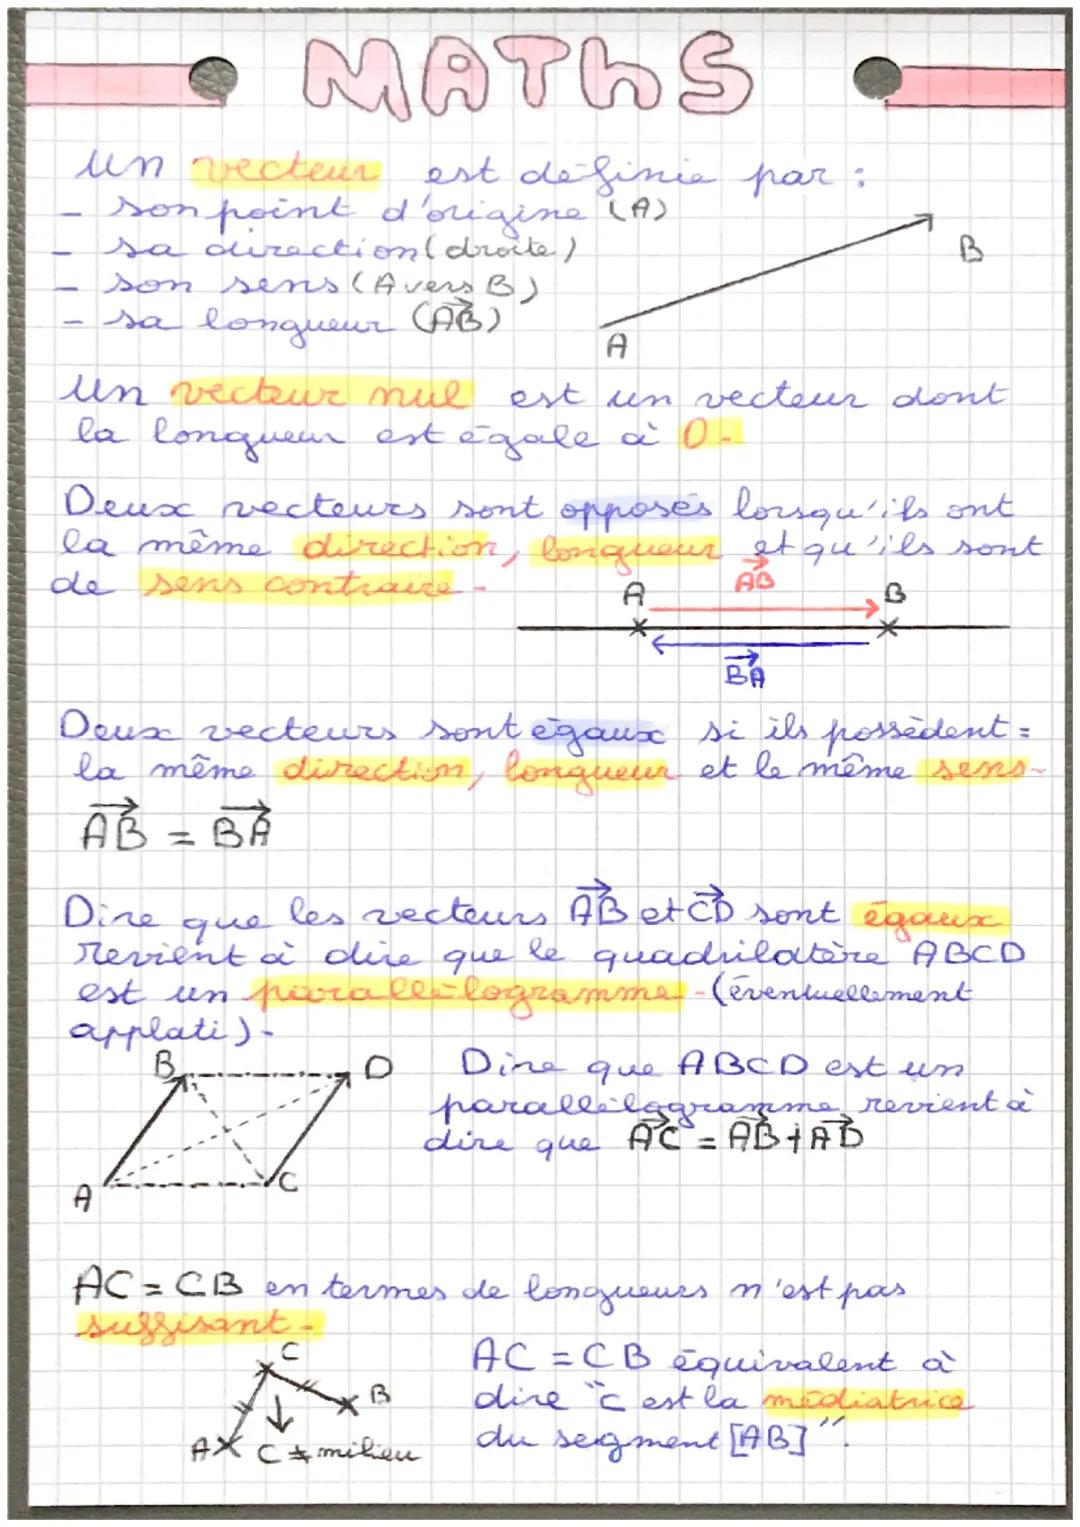 MATHS
Un vecteur est définie par :
- son point d'origine (A)
- sa direction (droite)
- son sens (A vers B)
- sa longueur (A⃗B)
B
A
Un vecteur nul est un vecteur dont
la longueur est égale à 0.
Deux vecteurs sont opposés lorsqu'ils ont
la même direction, longueur et qu'ils sont
de sens contraire.
A A⃗B B
B⃗A
Deux vecteurs sont égaux si ils possèdent :
la même direction, longueur et le même sens.
A⃗B = B⃗A
Dire que les vecteurs A⃗B et C⃗D sont égaux
revient à dire que le quadrilatère ABCD
est un parallélogramme. (éventuellement
applati).
B D
A C
Dire que ABCD est un
parallélogramme revient à
dire que A⃗C = A⃗B + A⃗D
AC = CB en termes de longueurs n'est pas
suffisant.
C
B
A C ≠ milieu
AC = CB équivalent à
dire "c est la médiatrice
du segment [AB]".